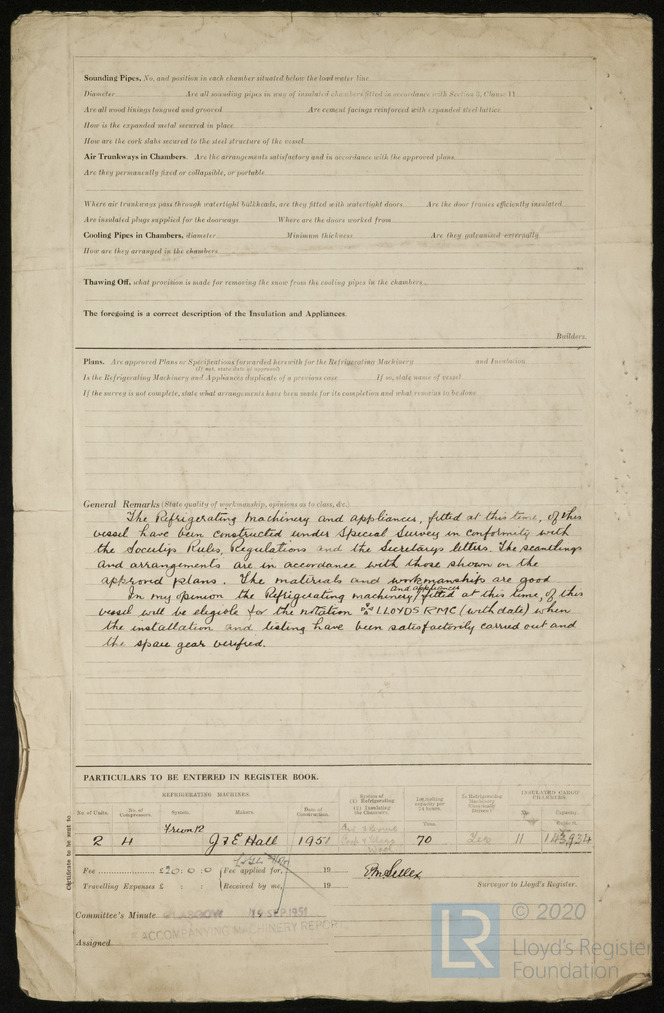 Sounding Pipes, No. and position in each chamber situated below the load water line
Diameter Are all sounding pipes in way of insulated chambers fitted in accordance with Section 3, Clause 11
Are all wood linings tongued and grooved Are cement facings reinforced with expanded steel lattice
How is the expanded metal secured in place
How are the cork slabs secured to the steel structure of the vessel
Air Trunkways in Chambers. Are the arrangements satisfactory and in accordance with the approved plans
Are they permanently fixed or collapsible, or portable
Where air trunkways pass through watertight bulkheads, are they fitted with watertight doors Are the door frames efficiently insulated
Are insulated plugs supplied for the doorways Where are the doors worked from
Cooling Pipes in Chambers, diameter Minimum thickness Are they galvanised externally
How are they arranged in the chambers
Thawing Off, what provision is made for removing the snow from the cooling pipes in the chambers
The foregoing is a correct description of the Insulation and Appliances.
Builders.
Plans. Are approved Plans or Specifications forwarded herewith for the Refrigerating Machinery and Insulation
(If not, state date of approval)
Is the Refrigerating Machinery and Appliances duplicate of a previous case If so, state name of vessel
If the survey is not complete, state what arrangements have been made for its completion and what remains to be done
General Remarks (State quality of workmanship, opinions as to class, &c.)
The Refrigerating machinery and appliances, fitted at this time, of this
vessel have been constructed under Special Survey in conformity with
the Societys Rules, Regulations and the Secretarys letters. The scantlings
and arrangements are in accordance with those shown on the
approved plans. The materials and workmanship are good
and appliances
In my opinion the Refrigerating machinery / fitted at this time, of this
vessel will be eligible for the notation LLOYDS RMC (with date) when
the installation and testing have been satisfactorily carried out and
the spare gear verified.
PARTICULARS TO BE ENTERED IN REGISTER BOOK.
REFRIGERATING MACHINES.
System of (1) Refrigerating (2) Insulating the Chambers.
Ice-making capacity per 24 hours.
Is Refrigerating Machinery Electrically Driven?
INSULATED CARGO CHAMBERS.
No. of Units. No. of Compressors. System. Makers. Date of Construction. Tons. No. Capacity.
Freon 12
2 4 J & E Hall 1951 70 Yes 11 143,934
Certificate to be sent to
Fee £20:0:0 Fee applied for, 19
Travelling Expenses £ : : Received by me, 19
Surveyor to Lloyd's Register.
Committee's Minute GLASGOW 19 SEP 1951
ACCOMPANYING MACHINERY REPORT
Assigned
LR © 2020
Lloyd's Register
Foundation